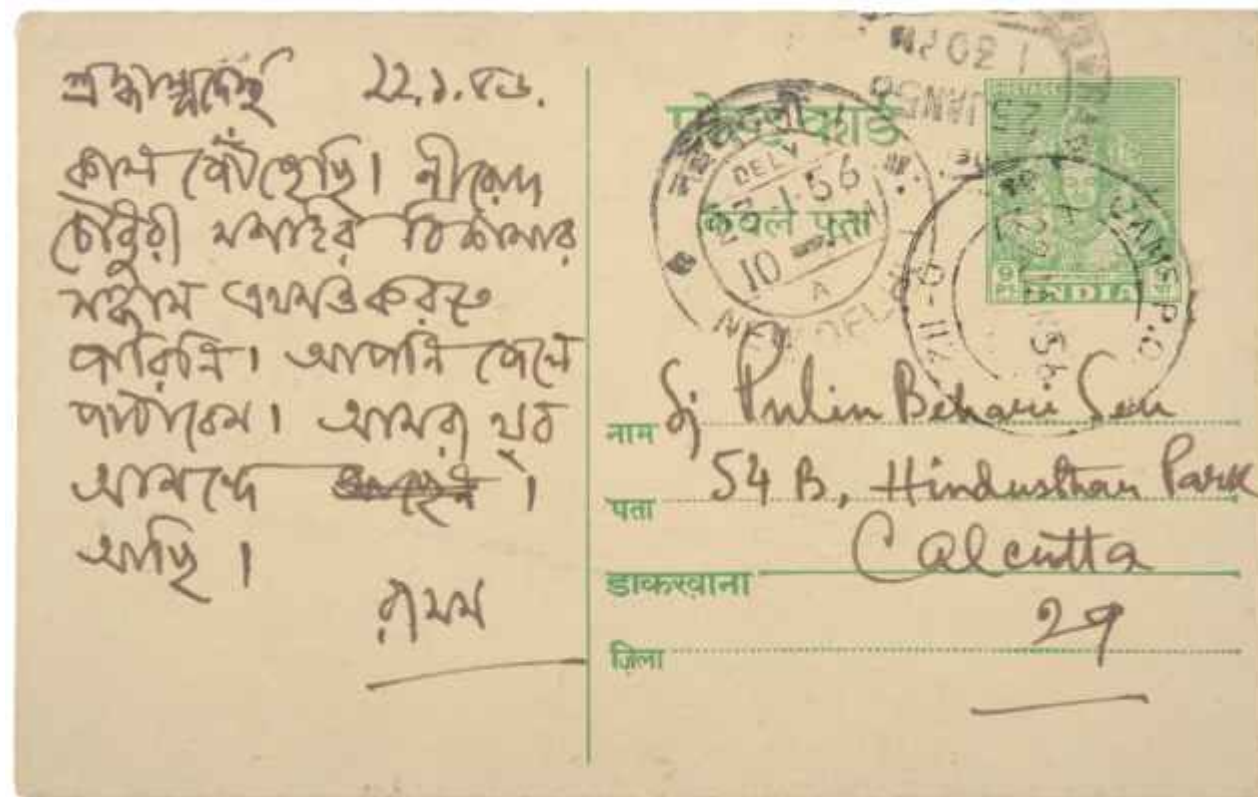 শ্রদ্ধাস্পদেষু ২২.১.৫৬.
কাল পৌঁছেছি। নীরোদ
চৌধুরী মশাইর ঠিকানার
সন্ধান এখনও করতে
পারিনি। আপনি জেনে
পাঠাবেন। আমরা খুব
আনন্দে
আছি।
পোস্ট कार्ड
केवल पता
INDIA
DELY
1.56
10
A
NEW DELHI
1 30 PM
JAN 56
P.O
নাম Sj Pulin Behari Sen
पता 54 B, Hindusthan Park
डाकखाना Calcutta
29
ज़िला